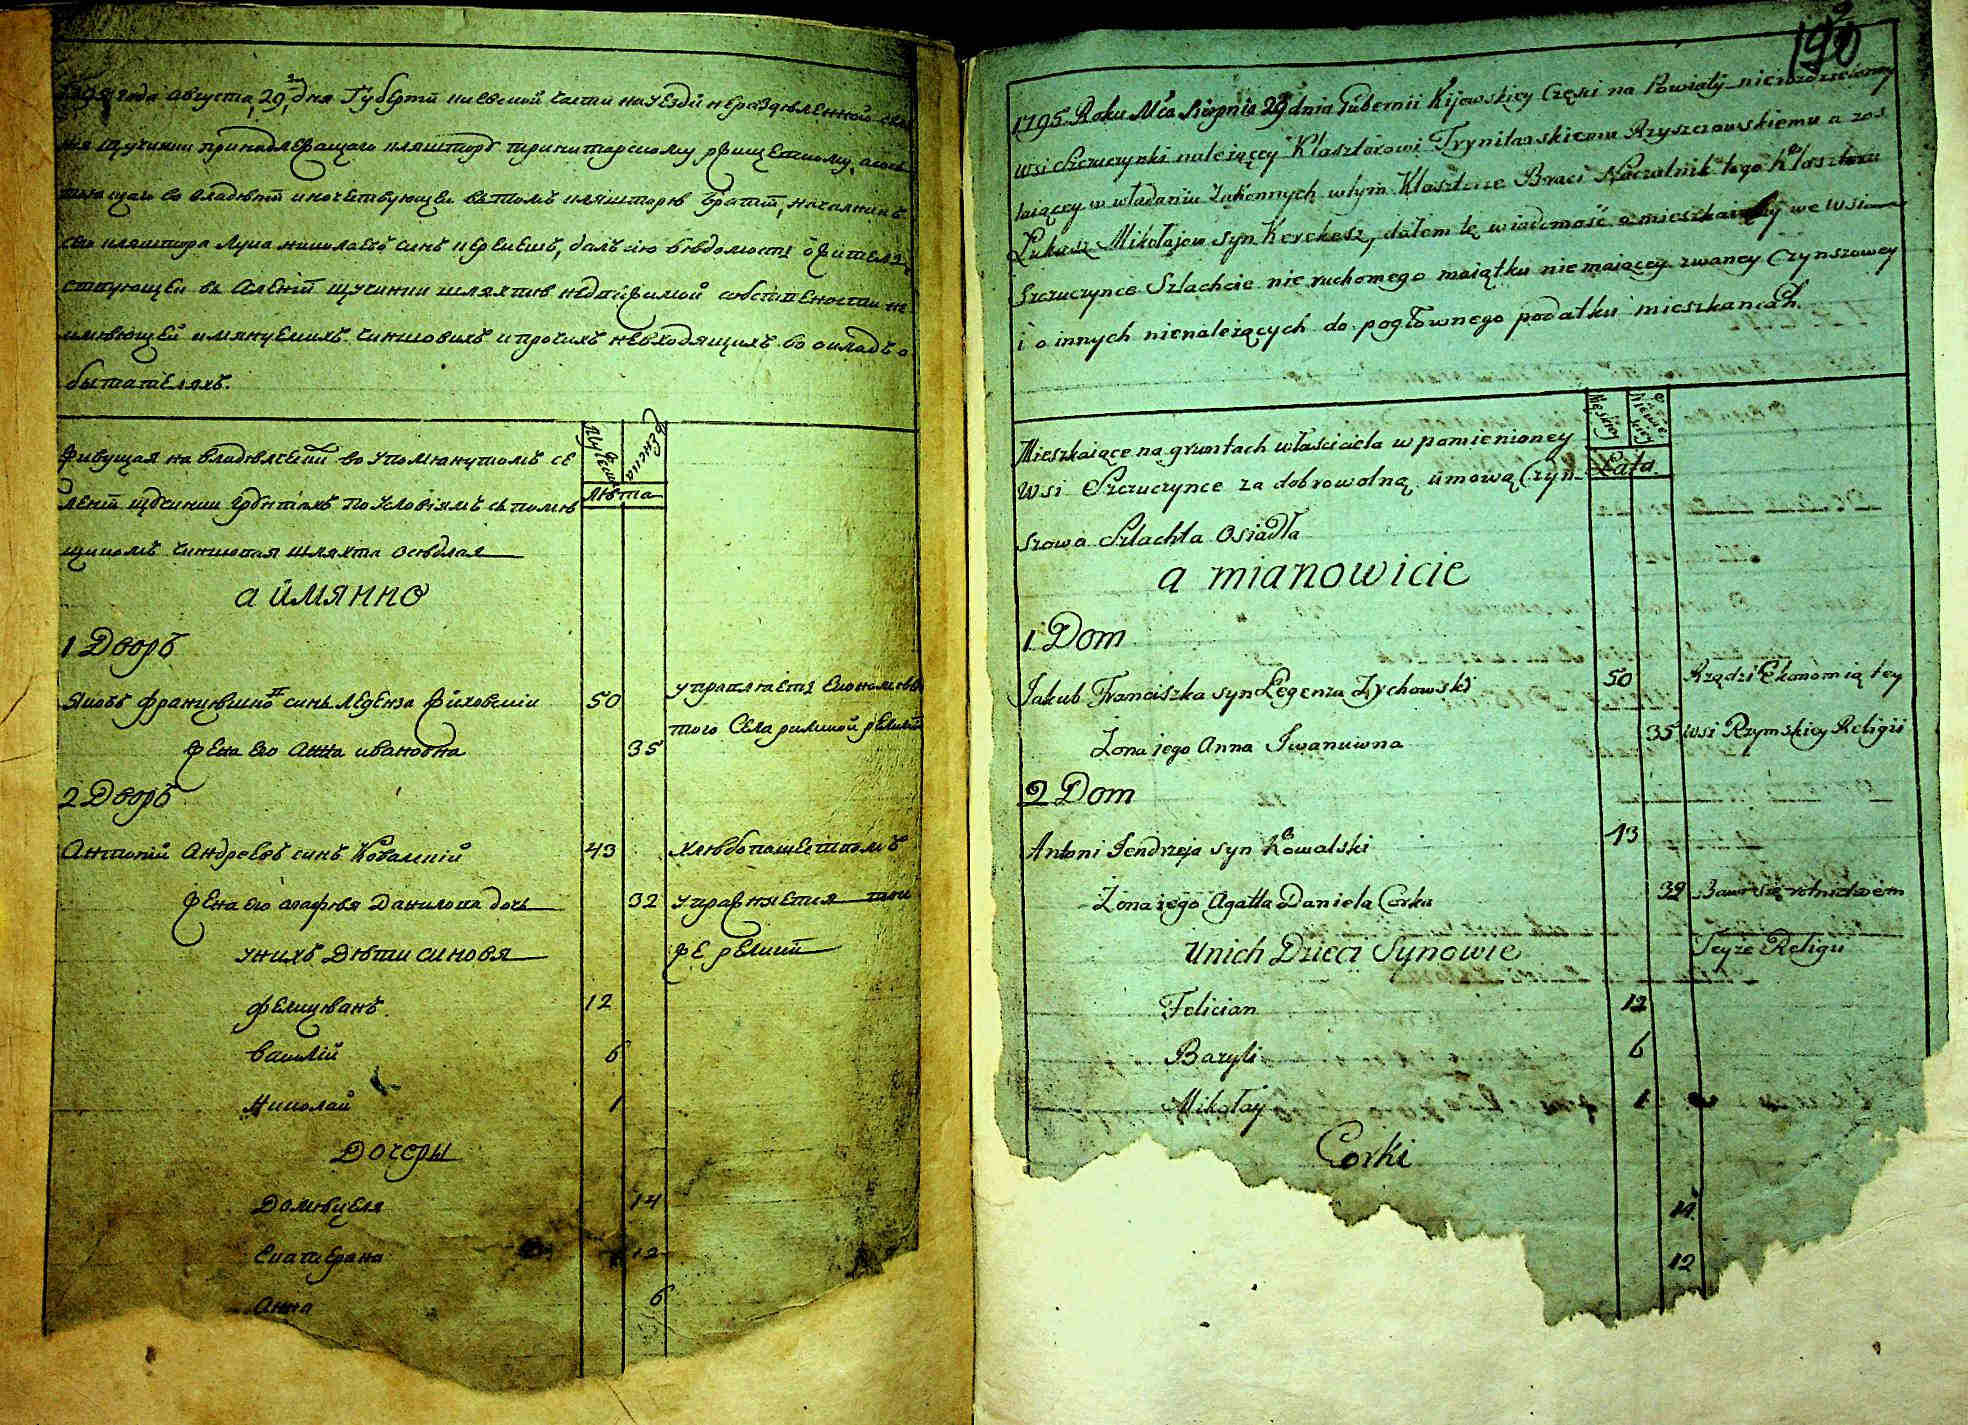 1795 года августа 29 дня Губерніи Киевской части науезди нераздѣленной сел
ня щучинки принадлежащаго кляштору тринитарскому ржищевскому, асосъ
тоящаго во владѣніи иночествующеи втомъ кляшторѣ братіи, началникъ
сего кляштора Лука николаевъ синъ керекешъ, далъ сію вѣдомость ожителъ
ствующеи въ селеніи щучинки шляхтив недвижимой собственности не
имѣющей имянуемихъ чиншовихъ и прочихъ невходящихъ во окладъ о
бытателяхъ.
мужеска
женска
лѣта
Живущая на владѣлческой во упомянутомъ се
леніи щучинки грунтахъ по условіямъ съ помѣ
щикомъ чиншовая шляхта осѣдлая
а имянно
1 Дворъ
Яковъ Францѣшковъ синъ Легенза Жиховскіи 50 управляетъ економіею
того села римской релиіи
жена его Анна ивановна 35
2 Дворъ
Антоній Андреевъ синъ Ковалскій 43 хлѣбопашествомъ
жена его агафѣя Данилова дочь 32 упражняется тои
унихъ Дѣти синовя же релиіи
Фелицѣанъ 12
Василій 6
Николай 1
Дочеры
Домѣцеля 14
Екатерина 12
Анна 6
190
1795 Roku Mca Sierpnia 29 dnia Gubernii Kijowskiey Części na Powiaty nierozdzieloney
wsi Szczuczynki należącey Klasztorowi Trynitarskiemu Rzyszczowskiemu a zos
taiącey w władaniu Zakonnych wtym Klasztorze Braci Naczelnik tego Klasztoru
Łukasz Mikołajow syn Kerekesz, dałem tę wiadomość o mieszkaiącey we wsi
Szczuczynce Szlachcie nie ruchomego maiątku niemaiącey zwaney Czynszowey
i o innych nienależących do pogłownego podatku mieszkancach.
Męskiey
Niewieskiey
Lata
Mieszkaiące na gruntach właściciela w pomienioney
wsi Szczuczynce za dobrowolną umową Czyn
szowa Szlachta Osiadła
a mianowicie
1 Dom
Jakub Franciszka syn Legenza Zychowski 50 Rządzi Ekonomią tey
Zona iego Anna Iwanowna 35 wsi Rzymskiey Religii
2 Dom
Antoni Jendrzeja syn Kowalski 43
Zona iego Agatta Daniela Corka 32 Bawi się rolnictwem
U nich Dzieci Synowie Teyze Religii
Felician 12
Bazyli 6
Mikołay 1
Corki
14
12